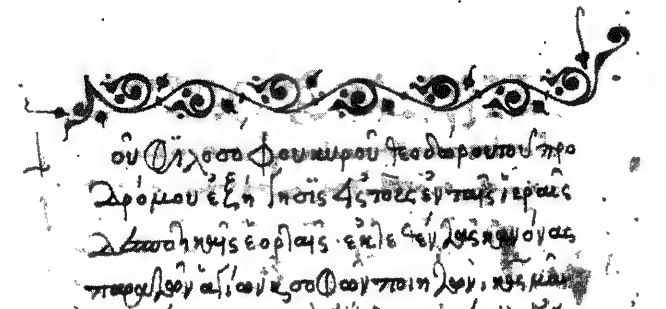 οῦ φιλοσόφου κυροῦ θεοδώρου τοῦ προ
δρόμου ἐξήγησις εἰς τοὺς ἐν ταῖς ἱεραῖς
δεσποτικαῖς ἑορταῖς· ἐκτεθέντας κανόνας
παρὰ τῶν ἁγίων κ̀ σοφῶν ποιητῶν,